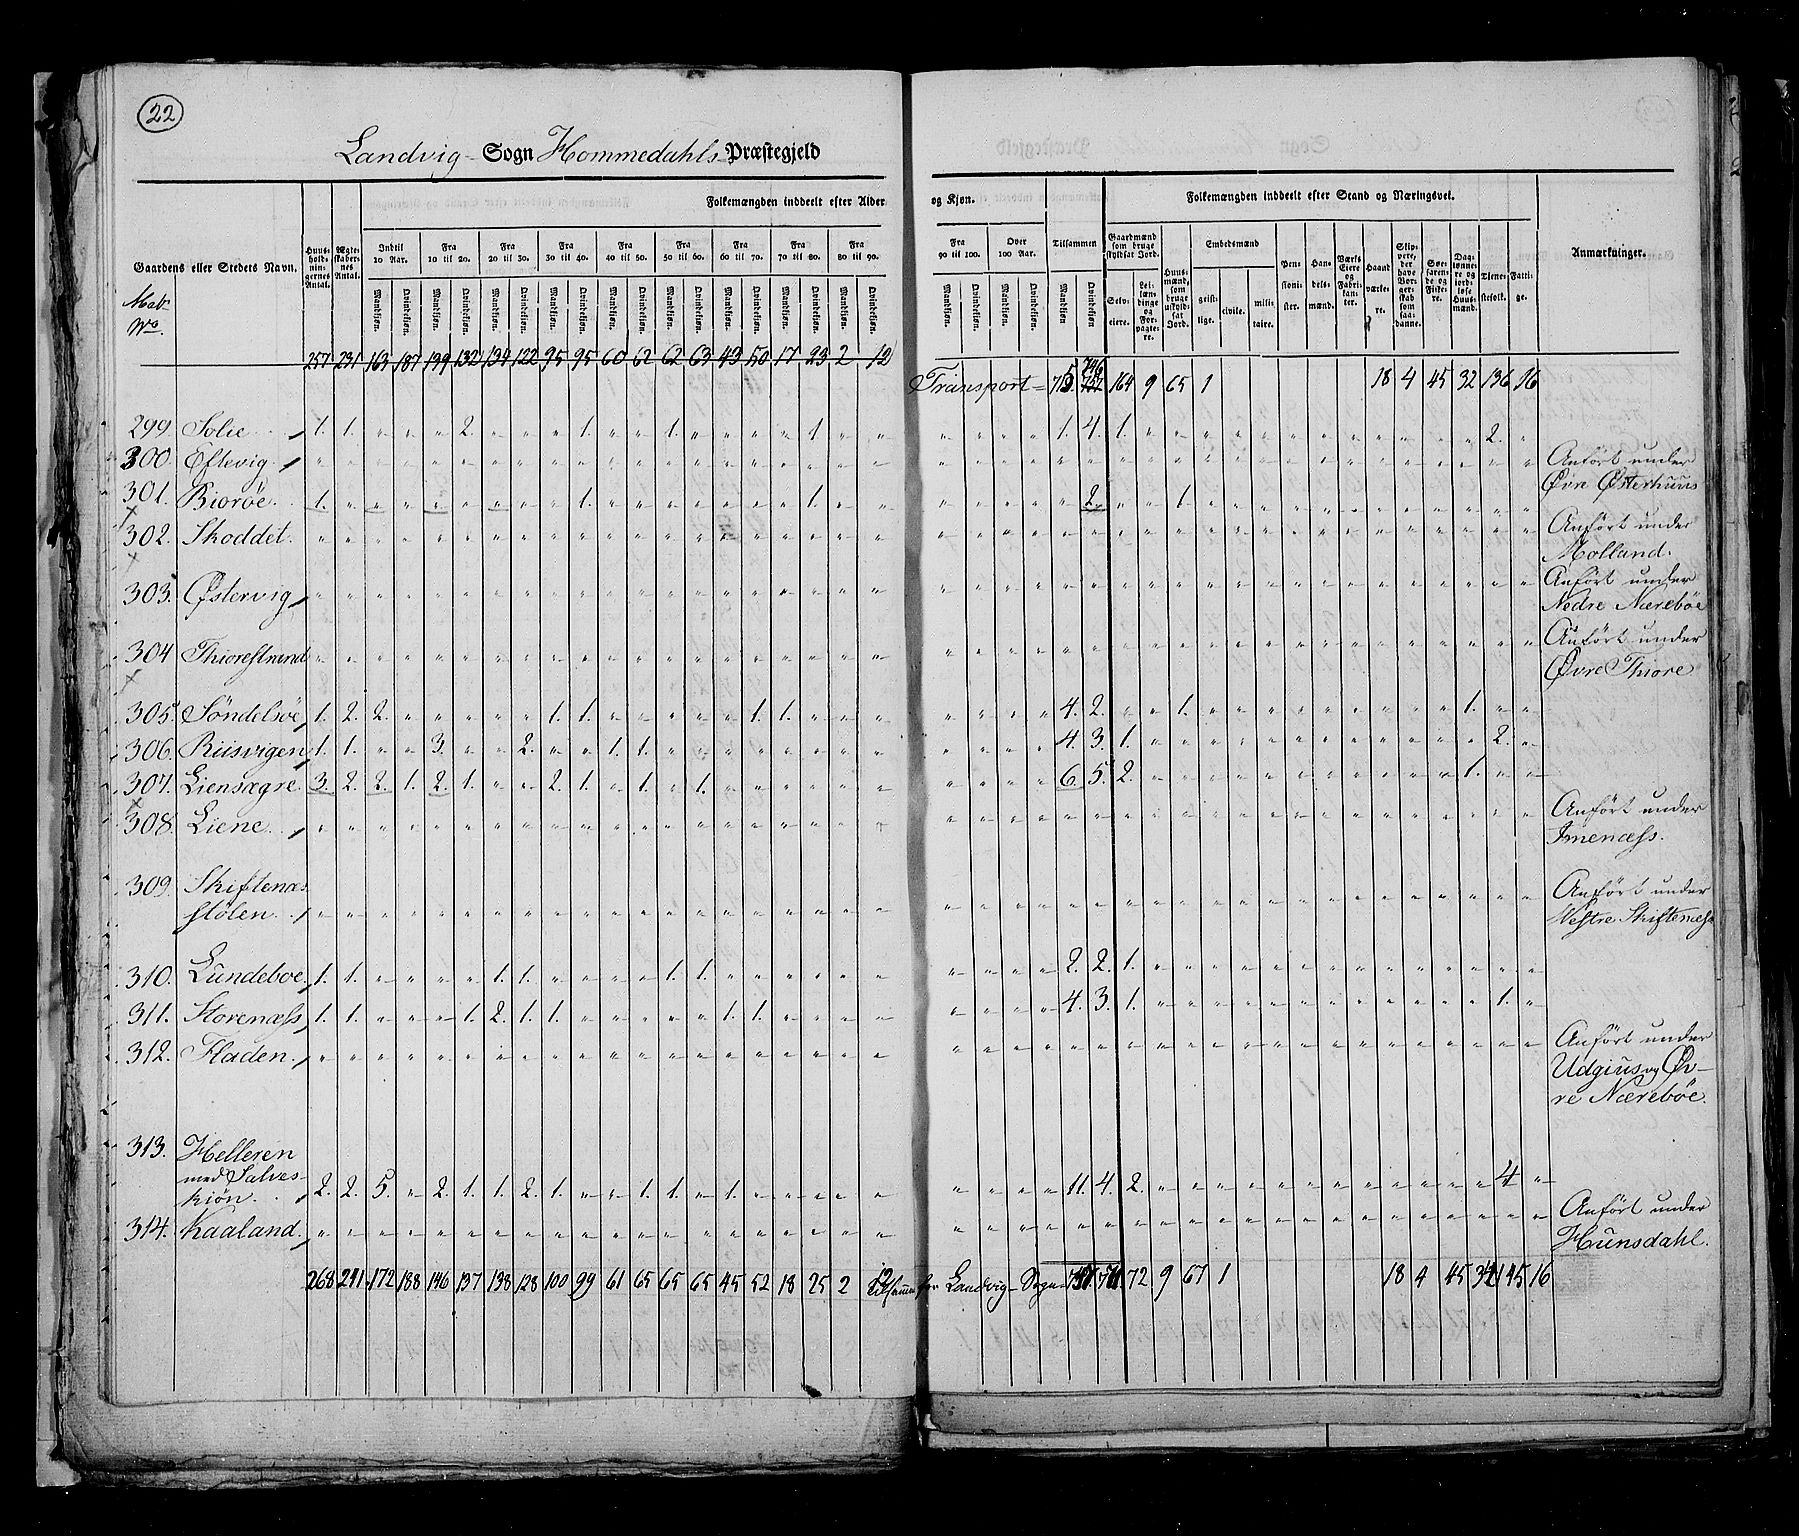 22
Landvig - Sogn Hommedahls Præstegjeld
Folkemængden inddeelt efter Alder og Kjøn. Tilsammen Folkemængden inddeelt efter Stand og Næringsvei.
Gaardens eller Stedets Navn. Huusholdningernes Antal. Ægteskabernes Antal. Indtil 10 Aar. Fra 10 til 20. Fra 20 til 30. Fra 30 til 40. Fra 40 til 50. Fra 50 til 60. Fra 60 til 70. Fra 70 til 80. Fra 80 til 90. Fra 90 til 100. Over 100 Aar. Anmærkninger.
Mandkjøn. Qvindekjøn.
Gaardmænd som bruge skyldsat Jord. Selveiere. Leilændinge og Forpagtere. Huusmænd, som bruge uskyldsat Jord. Embedsmænd geistlige. civile. militaire. Pensionister. Handelsmænd. Værks Eiere og Fabrikanter. Haandværkere. Søefarende og Fiskere. Tjenestefolk. Fattige.
Matr No.
257 231 163 187 139 132 134 122 95 95 60 62 62 63 43 50 17 23 2 12
Transport 164 9 65 1 18 4 45 32 136 16
299. Solie. 1. 1. " " " 2. " " " 1. " " 1. " " " " 1. " " " " " " 1. 4. 1. 2. "
300. Östevig. Anfört under
Øvre Østerhuus
301. Biorøe. 1. 1. 1. 2. 1.
302. Skoddet. Anfört under
Molland.
303. Østervig Anfört under
Nedre Nærebøe
304 Thiorestrand Anfört under
Øvre Thiore
305. Söndelsöe 1. 2. 2. 1. 1. 1. 1. 4. 2. 1. 1.
306. Riisvigen 1. 1. 3. 2. 1. 1. 4. 3. 1. 2.
307. Liensægre 3. 2. 2. 1. 2. 1. 2. 1. 1. 1. 6. 5. 2. 1.
308. Liene. Anfört under
Imenæss.
309. Skiftenæs
stölen. Anfört under
Vestre Skiftenæss
310. Lundeboe 1. 1. 1. 1. 1. 1. 2. 2. 1.
311. Storenæss 1. 1. 1. 2. 1. 1. 1. 1. 4. 3. 1. 1.
312. Fladen. Anfört under
Udgius og Øv-
re Nærebøe.
313. Helleren
med Salves-
kiön. 2. 2. 5. 2. 1. 1. 2. 1. 1. 1. 1. 11. 4. 2. 4
314. Kaaland. Anfört under
Hunsdahl.
268 241 172 188 146 137 138 128 100 99 61 65 65 65 45 52 18 25 2 12 Tilsammen for Landvig - Sogn 172 9 67 1 18 4 45 34 145 16